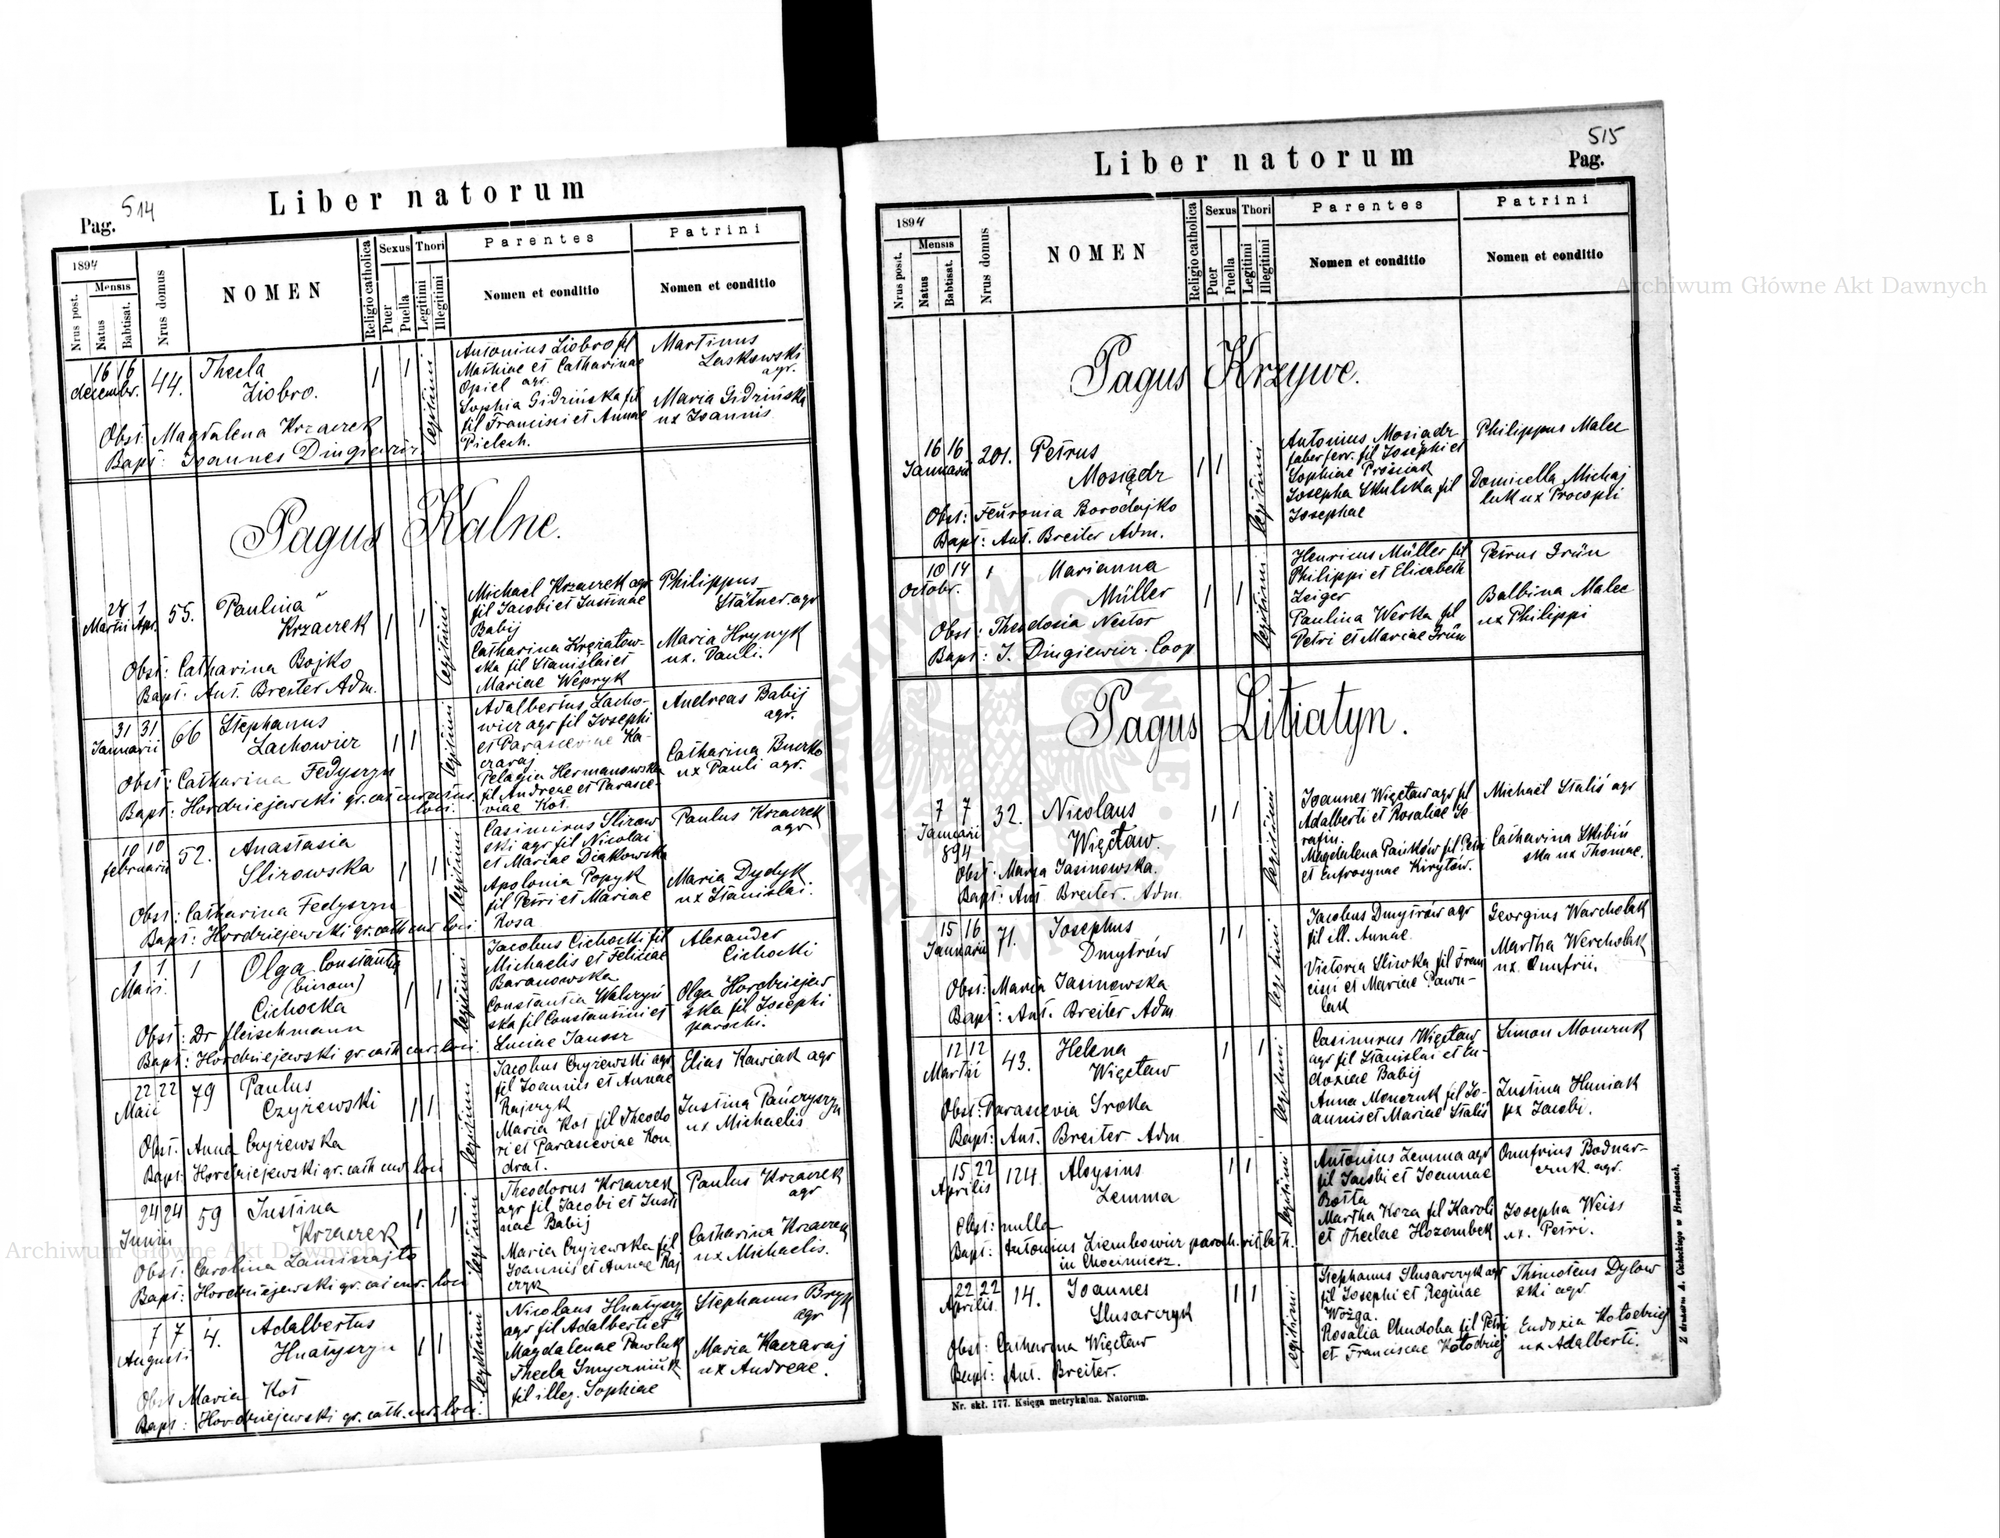 Pag. 514
Liber natorum
1894
Nrus post.
Mensis
Natus
Babtisat.
Nrus domus
NOMEN
Religio catholica
Sexus
Puer
Puella
Thori
Legitimi
Illegitimi
Parentes
Nomen et conditio
Patrini
Nomen et conditio
16 16
decembr.
44.
Thecla
Ziobro.
1 1
legitimi
Antonius Ziobro fil
Mathiae et Catharinae
Opiel agr.
Sophia Gidzińska fil
fil Francisci et Annae
Pielech.
Martinus
Laskowski
agr.
Maria Gidzińska
ux Joannis
Obst: Magdalena Krzaczek
Bapt: Joannes Dingiewicz
Pagus Kalne.
28 1
Martii Apr.
55.
Paulina
Krzaczek
1 1
legitimi
Michael Krzaczek agr
fil Jacobi et Justinae
Babij
Catharina
ska fil Stanislai et
Mariae Wepryk
Philippus
Stätner agr
Maria Hrynyk
ux. Pauli.
Obst: Catharina Bojko
Bapt: Ant. Breiter Adm.
31 31
Januarii
66
Stephanus
Lachowicz
1 1
legitimi
Adalbertus Lacho-
wicz agr fil Josephi
et Parasceviae Ka-
czaraj
Pelagia Hermanowska
fil Andreae et Parasce-
viae Kot.
Andreas Babij
agr.
Catharina Buczko
ux Pauli agr.
Obst: Catharina Fedyszyn
Bapt: Hordziejewski gr. cat. cur. loci.
10 10
februarii
52.
Anastasia
Slizowska
1 1
legitimi
Casimirus Slizow
ski agr fil Nicolai
et Mariae Diakowska
Apolonia Popyk
fil Petri et Mariae
Rosa
Paulus Krzaczek
agr
Maria Dydyk
ux Stanislai.
Obst: Catharina Fedyszyn
Bapt: Hordziejewski gr. cath. cur. loci
1 1
Maii.
1
Olga Constantia
(binom)
Cichocka
1 1
legitimi
Jacobus Cichocki fil
Michaelis et Feliciae
Baranowska
Constantia Walczyń
ska fil Constantini et
Luciae Janssz
Alexander
Cichocki
Olga Hordziejew
ska fil Josephi
parochi.
Obst: Dr Fleischmann
Bapt: Hordziejewski gr. cath. cur. loci.
22 22
Maii
79
Paulus
Czyżewski
1 1
legitimi
Jacobus Czyżewski agr
fil Joannis et Annae
Rajczyk
Maria Kot fil Theodo
ri et Parasceviae Kon
drat.
Elias Kawiak agr
Justina Pańczyszyn
ux Michaelis
Obst. Anna Czyżewska
Bapt: Hordziejewski gr. cath. cur. loci
24 24
Junii
59
Justina
Krzaczek
1 1
legitimi
Theodorus Krzaczek
agr fil Jacobi et Justi
nae Babij
Maria Czyżewska fil
Joannis et Annae Raj
czyk
Paulus Krzaczek
agr
Catharina Krzaczek
ux Michaelis.
Obst: Carolina Zamiszajło
Bapt: Hordziejewski gr. cat. cur. loci
7 7
Augusti
4.
Adalbertus
Hnatyszyn
1 1
legitimi
Nicolaus Hnatyszyn
agr fil Adalberti et
Magdalenae Pawluk
Thecla Smyczniuk
fil illeg. Sophiae
Stephanus Bryk
agr
Maria Kaczaraj
ux Andreae.
Obst Maria Kot
Bapt: Hordziejewski gr. cath. cur. loci.
515
Pag.
Liber natorum
1894
Nrus post.
Mensis
Natus
Babtisat.
Nrus domus
NOMEN
Religio catholica
Sexus
Puer
Puella
Thori
Legitimi
Illegitimi
Parentes
Nomen et conditio
Patrini
Nomen et conditio
Pagus Krzywe.
16 16
Januarii
201.
Petrus
Mosiądz
1 1
legitimi
Antonius Mosiądz
faber ferr. fil Josephi et
Sophiae Prośniak
Josepha Skulska fil
Josephae
Philippus Malec
Domicella Michaj
luk ux Procopii
Obst: Feuronia Borodajko
Bapt: Ant. Breiter Adm.
10 14
Octobr.
1
Marianna
Müller
1 1
legitimi
Henricus Müller fil
Philippi et Elisabeth
Zeiger
Paulina Werka fil
Petri et Mariae Grün
Petrus Grün
Balbina Malec
ux Philippi
Obst: Theodosia Nester
Bapt: J. Dingiewicz. Coop
Pagus Litiatyn.
7 7
Januarii
894
32.
Nicolaus
Więcław.
1 1
legitimi
Joannes Więcław agr fil
Adalberti et Rosaliae Se
rafin.
Magdalena Pańków fil Petri
et Eufrosynae Kiryłów.
Michael Staliś agr
Catharina Skibiń
ska ux Thomae.
Obst: Maria Jasinowska.
Bapt: Ant. Breiter. Adm
15 16
Januarii
71.
Josephus
Dmytrów
1 1
legitimi
Jacobus Dmytrów agr
fil ill. Annae.
Victoria Sliwka fil Fran
cisci et Mariae Pawu-
lak
Georgius Warcholak
Martha Wercholak
ux. Onufrii.
Obst: Maria Jasinowska
Bapt: Ant. Breiter Adm
12 12
Martii
43.
Helena
Więcław
1 1
legitimi
Casimirus Więcław
agr fil Stanislai et Eu-
doxiae Babij
Anna Monczuk fil Jo-
annis et Mariae Staliś
Simon Monczuk
Justina Huniak
ux Jacobi.
Obst: Parascevia Sroka
Bapt: Ant. Breiter Adm
15 22
Aprilis
124
Aloysius
Zemma
1 1
legitimi
Antonius Zemma agr
fil Jacobi et Joannae
Bośta
Martha Koza fil Karoli
et Theclae Hozembek
Onufrius Bodnar-
czuk agr.
Josepha Weiss
ux. Petri.
Obst: nulla
Bapt: Antonius Ziembowicz paroch. rit. lath.
in Chocimierz.
22 22
Aprilis.
14.
Joannes
Slusarczyk
1 1
legitimi
Stephanus Slusarczyk agr
fil Josephi et Reginiae
Woźga.
Rosalia Chudoba fil Petri
et Franciscae Kołodziej
Thimoteus Dylow
ski agr.
Eudoxia Kołodziej
ux Adalberti.
Obst: Catharina Więcław
Bapt: Ant. Breiter.
Nr. skł. 177. Księga metrykalna. Natorum.
Z drukarn A. Cichockiego w Brzeżanach.
Archiwum Główne Akt Dawnych
Archiwum Główne Akt Dawnych
ARCHIWUM GŁÓWNE AKT DAWNYCH